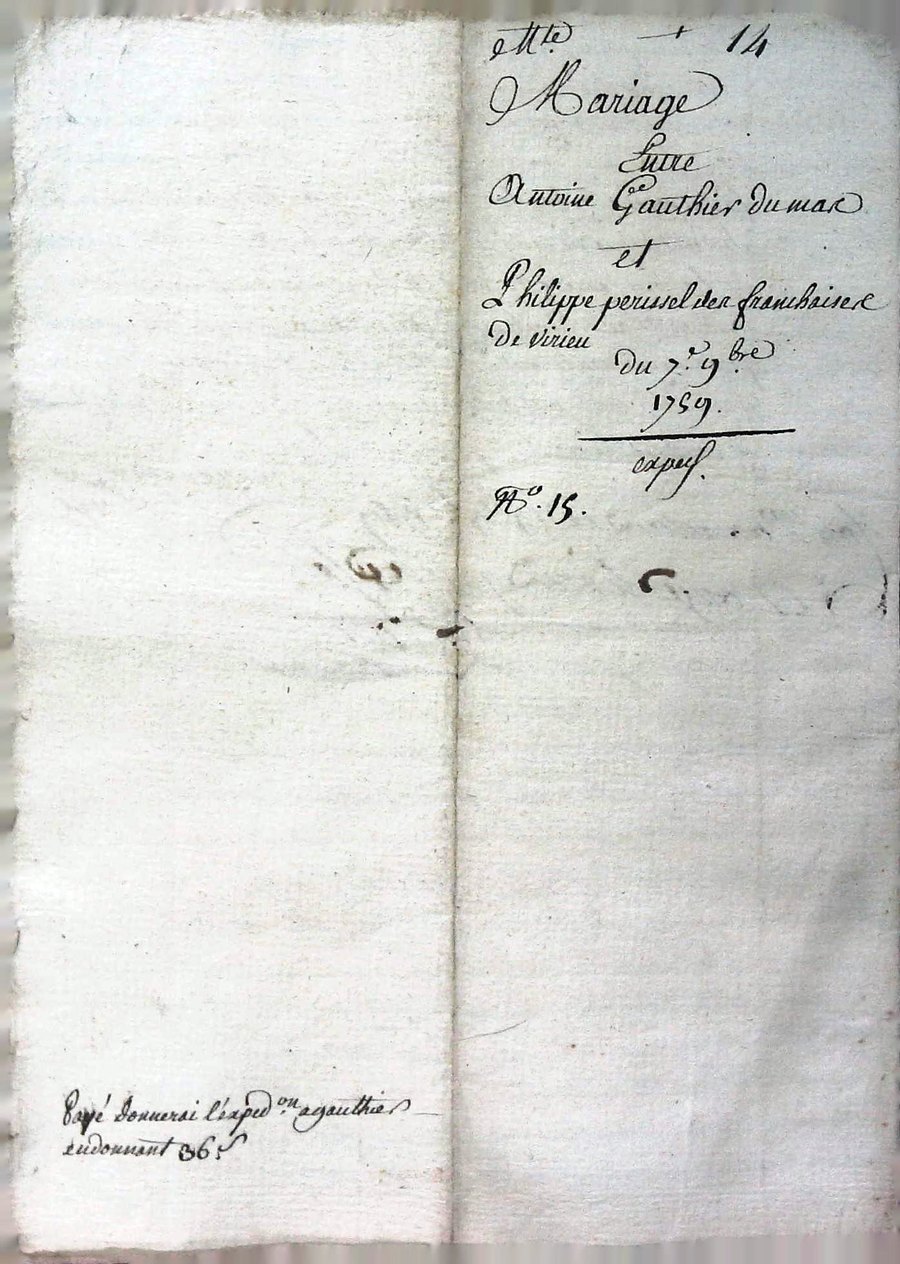 Mte + 14
Mariage
Entre
Antoine Gauthier du mas
et
Philippe perissel des franchaises
de virieu
du 7e 9bre
1759.
exped.
No. 15.
payé donnerai l'exped.on a gauthier
en donnant 36 s